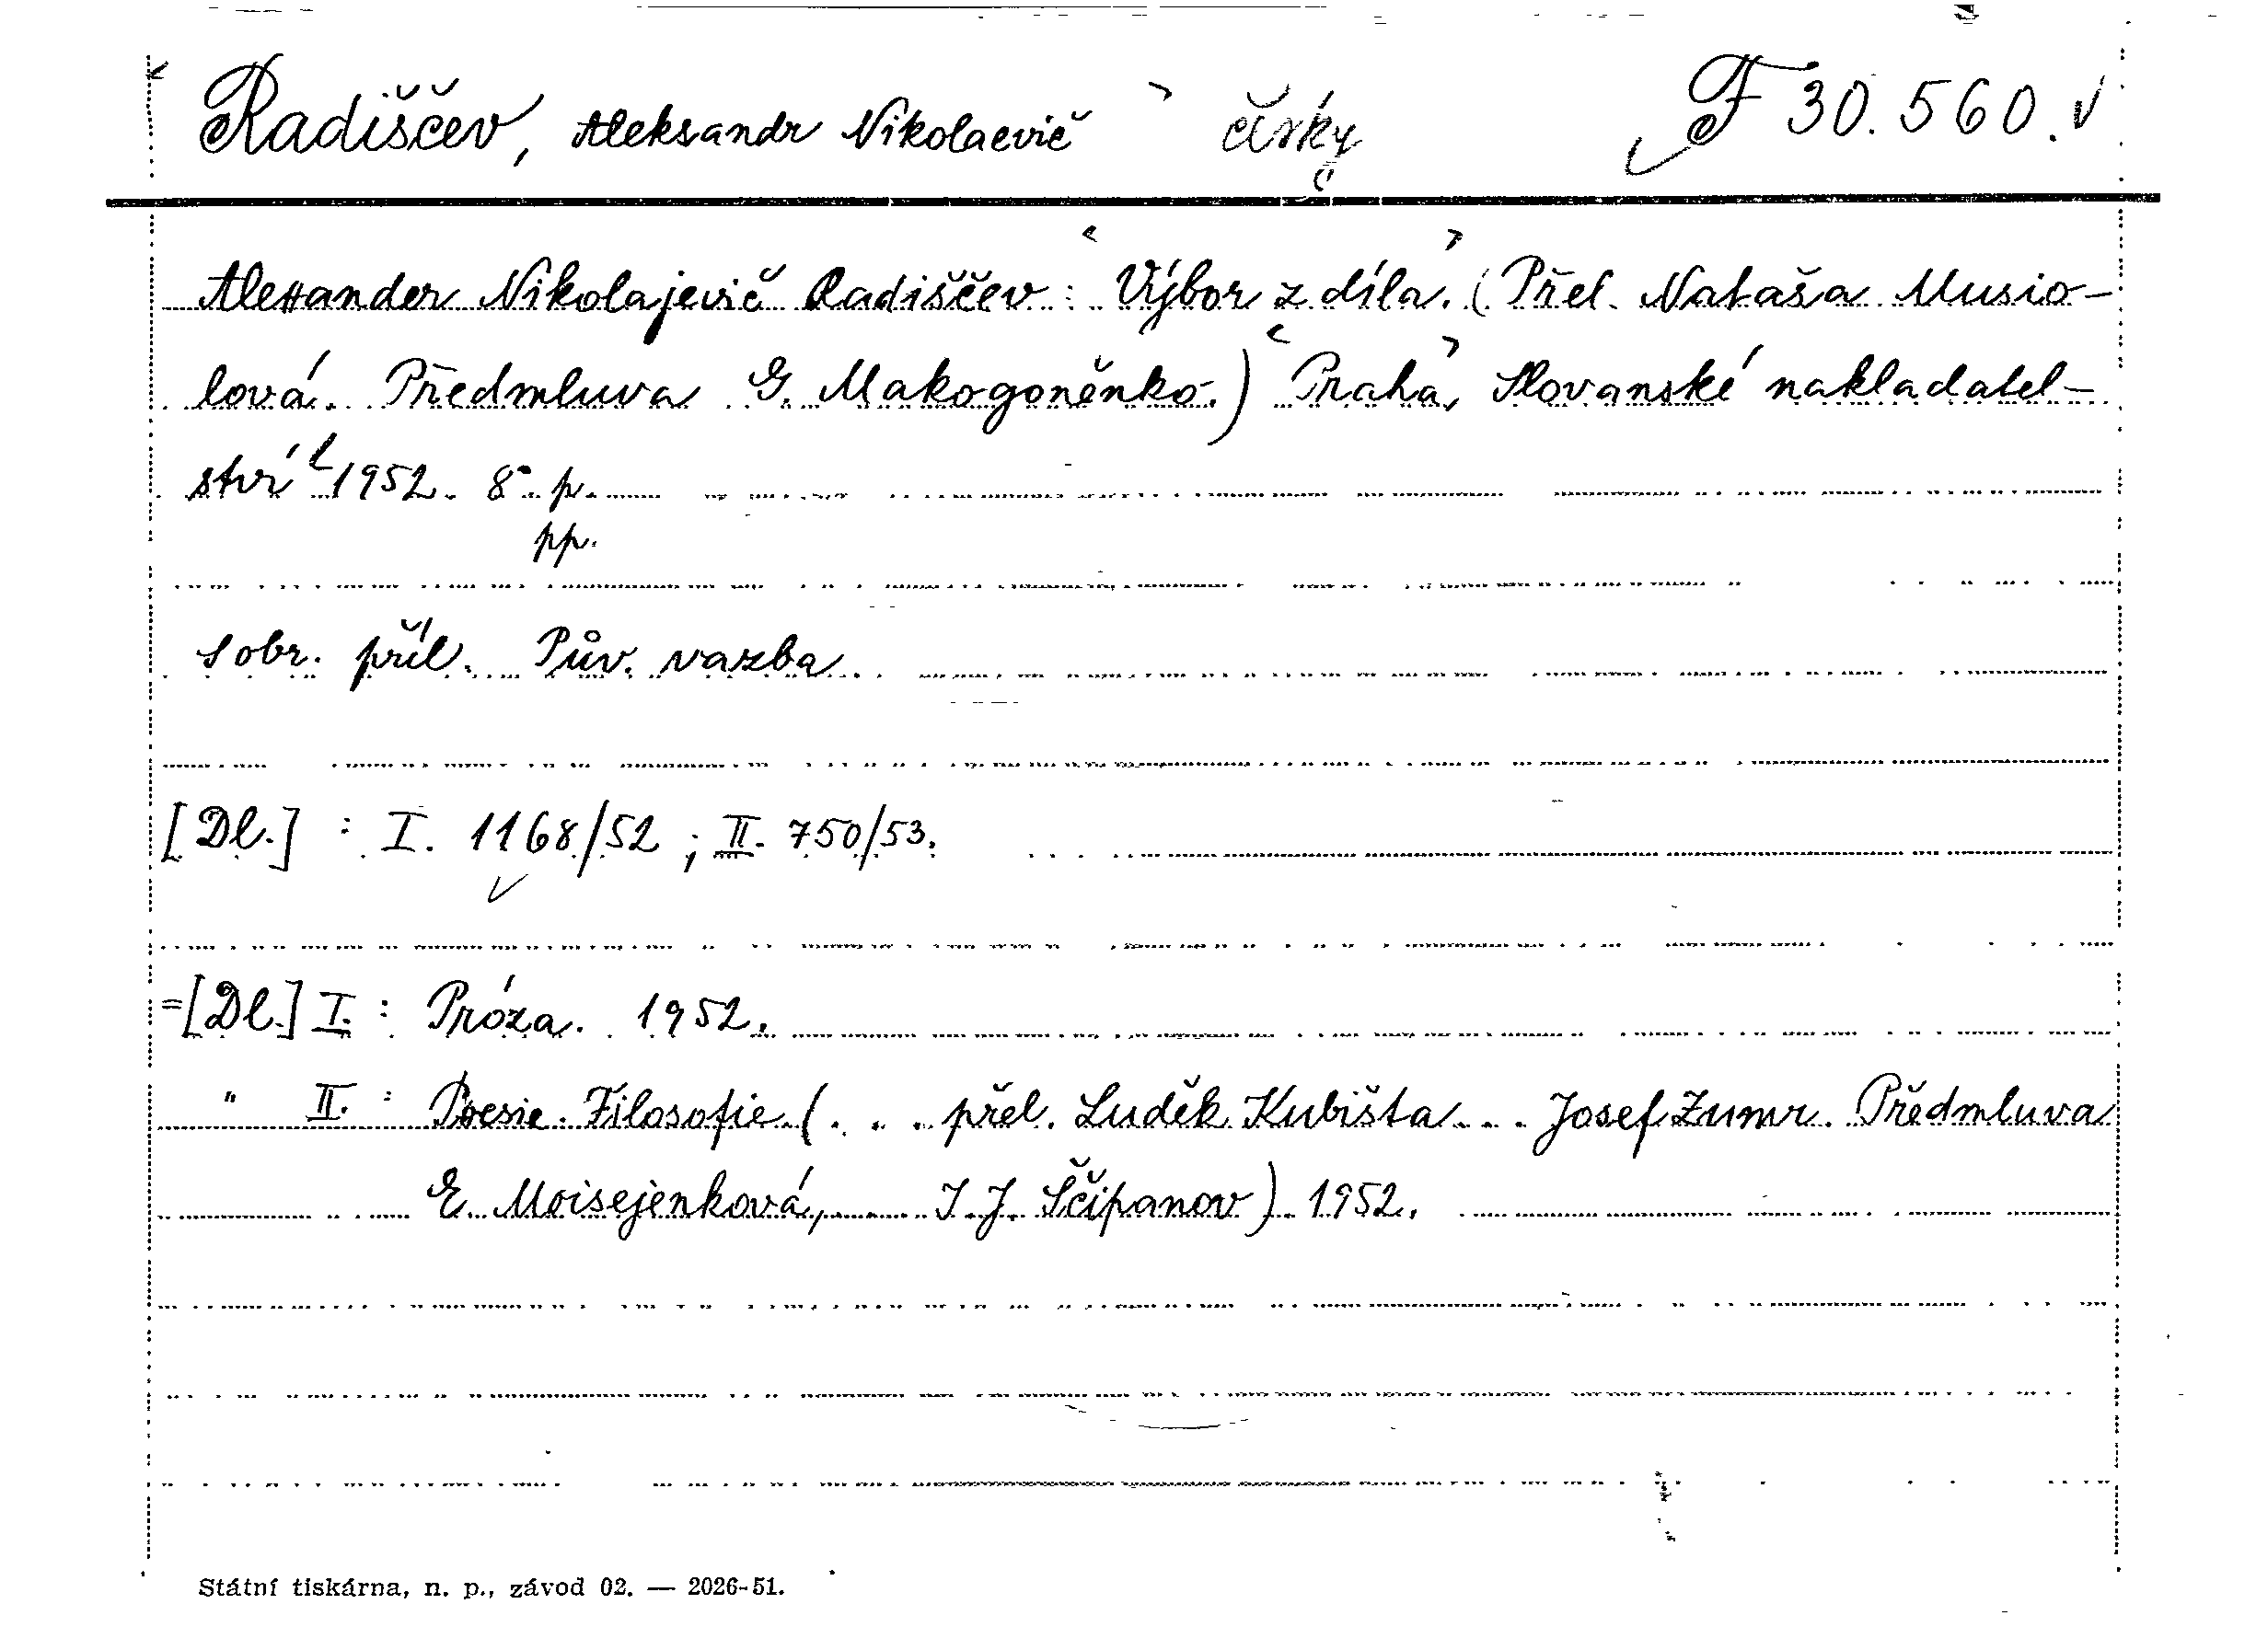 Radiščev, Aleksandr Nikolaevič čísky F 30.560.
Alexander Nikolajevič Radiščev: Výbor z díla. (Přel. Nataša Musio-
lová. Předmluva G. Makogoněnko.) Praha, Slovanské nakladatel-
ství 1952. 8° p.
pp.
S obr. příl. Pův. vazba.
[Dl.] : I. 1168/52 ; II. 750/53.
=[Dl.] I. : Próza. 1952.
" II. : Poesie. Filosofie (... přel. Luděk Kubišta ... Josef Zumr. Předmluva
E. Moisejenková, I. J. Ščipanov). 1952.
Státní tiskárna, n. p., závod 02. — 2026-51.